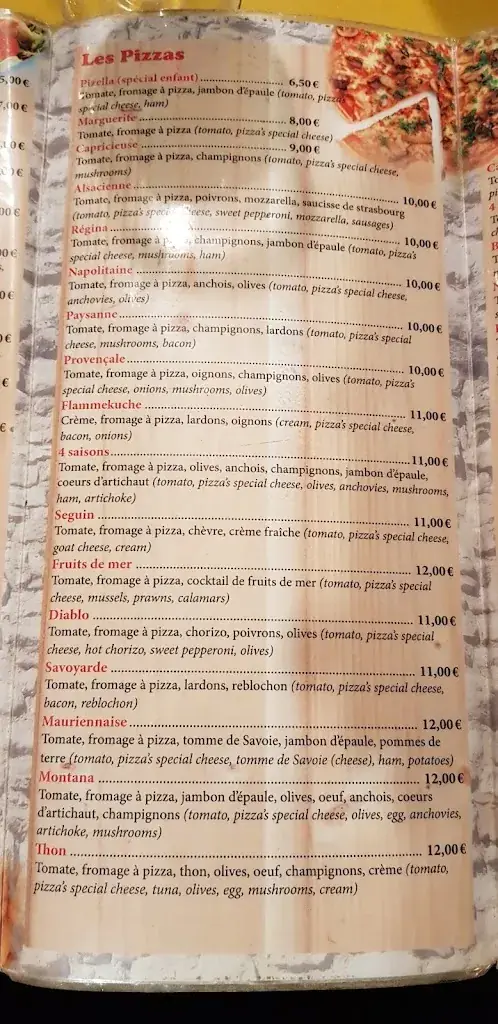 Les Pizzas
Pizella (spécial enfant) 6,50 €
Tomate, fromage à pizza, jambon d'épaule (tomato, pizza's
special cheese, ham)
Marguerite 8,00 €
Tomate, fromage à pizza (tomato, pizza's special cheese)
Capricieuse 9,00 €
Tomate, fromage à pizza, champignons (tomato, pizza's special cheese,
mushrooms)
Alsacienne 10,00 €
Tomate, fromage à pizza, poivrons, mozzarella, saucisse de strasbourg
(tomato, pizza's special cheese, sweet pepperoni, mozzarella, sausages)
Régina 10,00 €
Tomate, fromage à pizza, champignons, jambon d'épaule (tomato, pizza's
special cheese, mushrooms, ham)
Napolitaine 10,00 €
Tomate, fromage à pizza, anchois, olives (tomato, pizza's special cheese,
anchovies, olives)
Paysanne 10,00 €
Tomate, fromage à pizza, champignons, lardons (tomato, pizza's special
cheese, mushrooms, bacon)
Provençale 10,00 €
Tomate, fromage à pizza, oignons, champignons, olives (tomato, pizza's
special cheese, onions, mushrooms, olives)
Flammekuche 11,00 €
Crème, fromage à pizza, lardons, oignons (cream, pizza's special cheese,
bacon, onions)
4 saisons 11,00 €
Tomate, fromage à pizza, olives, anchois, champignons, jambon d'épaule,
coeurs d'artichaut (tomato, pizza's special cheese, olives, anchovies, mushrooms,
ham, artichoke)
Seguin 11,00 €
Tomate, fromage à pizza, chèvre, crème fraîche (tomato, pizza's special cheese,
goat cheese, cream)
Fruits de mer 12,00 €
Tomate, fromage à pizza, cocktail de fruits de mer (tomato, pizza's special
cheese, mussels, prawns, calamars)
Diablo 11,00 €
Tomate, fromage à pizza, chorizo, poivrons, olives (tomato, pizza's special
cheese, hot chorizo, sweet pepperoni, olives)
Savoyarde 11,00 €
Tomate, fromage à pizza, lardons, reblochon (tomato, pizza's special cheese,
bacon, reblochon)
Mauriennaise 12,00 €
Tomate, fromage à pizza, tomme de Savoie, jambon d'épaule, pommes de
terre (tomato, pizza's special cheese, tomme de Savoie (cheese), ham, potatoes)
Montana 12,00 €
Tomate, fromage à pizza, jambon d'épaule, olives, oeuf, anchois, coeurs
d'artichaut, champignons (tomato, pizza's special cheese, olives, egg, anchovies,
artichoke, mushrooms)
Thon 12,00 €
Tomate, fromage à pizza, thon, olives, oeuf, champignons, crème (tomato,
pizza's special cheese, tuna, olives, egg, mushrooms, cream)